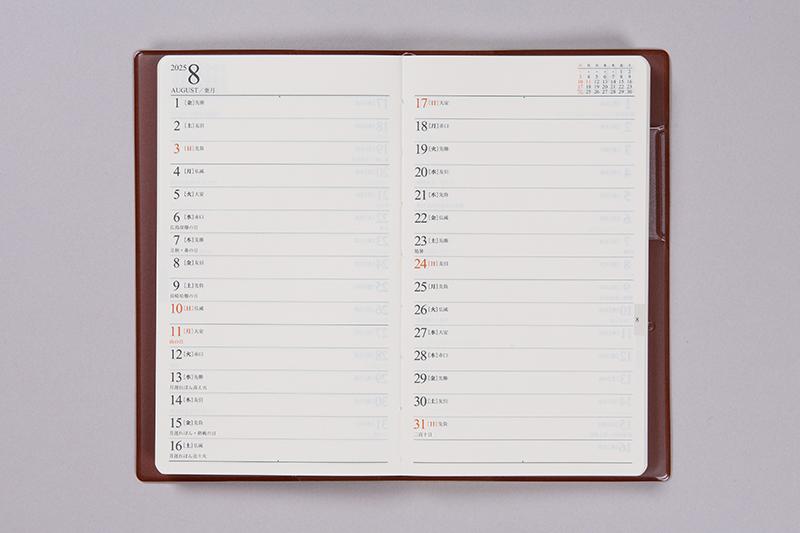 2025 8
AUGUST／葉月
1 [金] 先勝
2 [土] 友引
3 [日] 先負
4 [月] 仏滅
5 [火] 大安
6 [水] 赤口
広島原爆の日
7 [木] 先勝
立秋・鼻の日
8 [金] 友引
9 [土] 先負
長崎原爆の日
10 [日] 仏滅
11 [月] 大安
山の日
12 [火] 赤口
13 [水] 先勝
月遅れぼん迎え火
14 [木] 友引
15 [金] 先負
月遅れぼん・終戦の日
16 [土] 仏滅
月遅れぼん送り火
日 月 火 水 木 金 土
1 2
3 4 5 6 7 8 9
10 11 12 13 14 15 16
17 18 19 20 21 22 23
25 26 27 28 29 30
17 [日] 大安
18 [月] 赤口
19 [火] 先勝
20 [水] 友引
21 [木] 先負
22 [金] 仏滅
23 [土] 先勝
処暑
24 [日] 友引
25 [月] 先負
26 [火] 仏滅
27 [水] 大安
28 [木] 赤口
29 [金] 先勝
30 [土] 友引
31 [日] 先負
二百十日
8